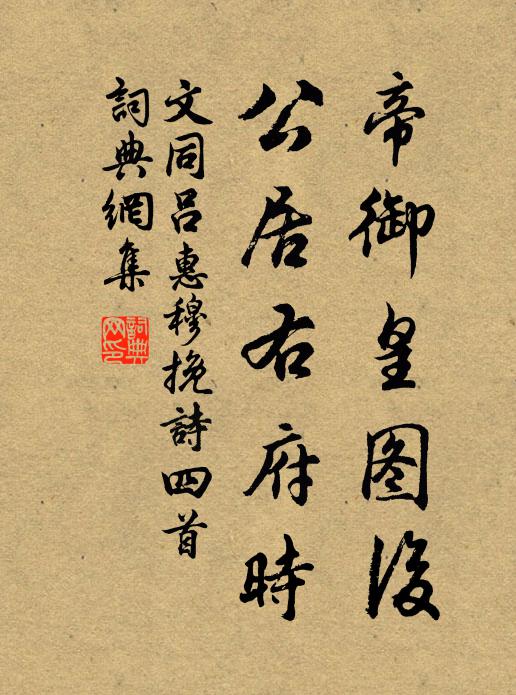 帝御皇图後
公居右府時
文同吕惠穆挽詩四首
詞典網集
詞典網印